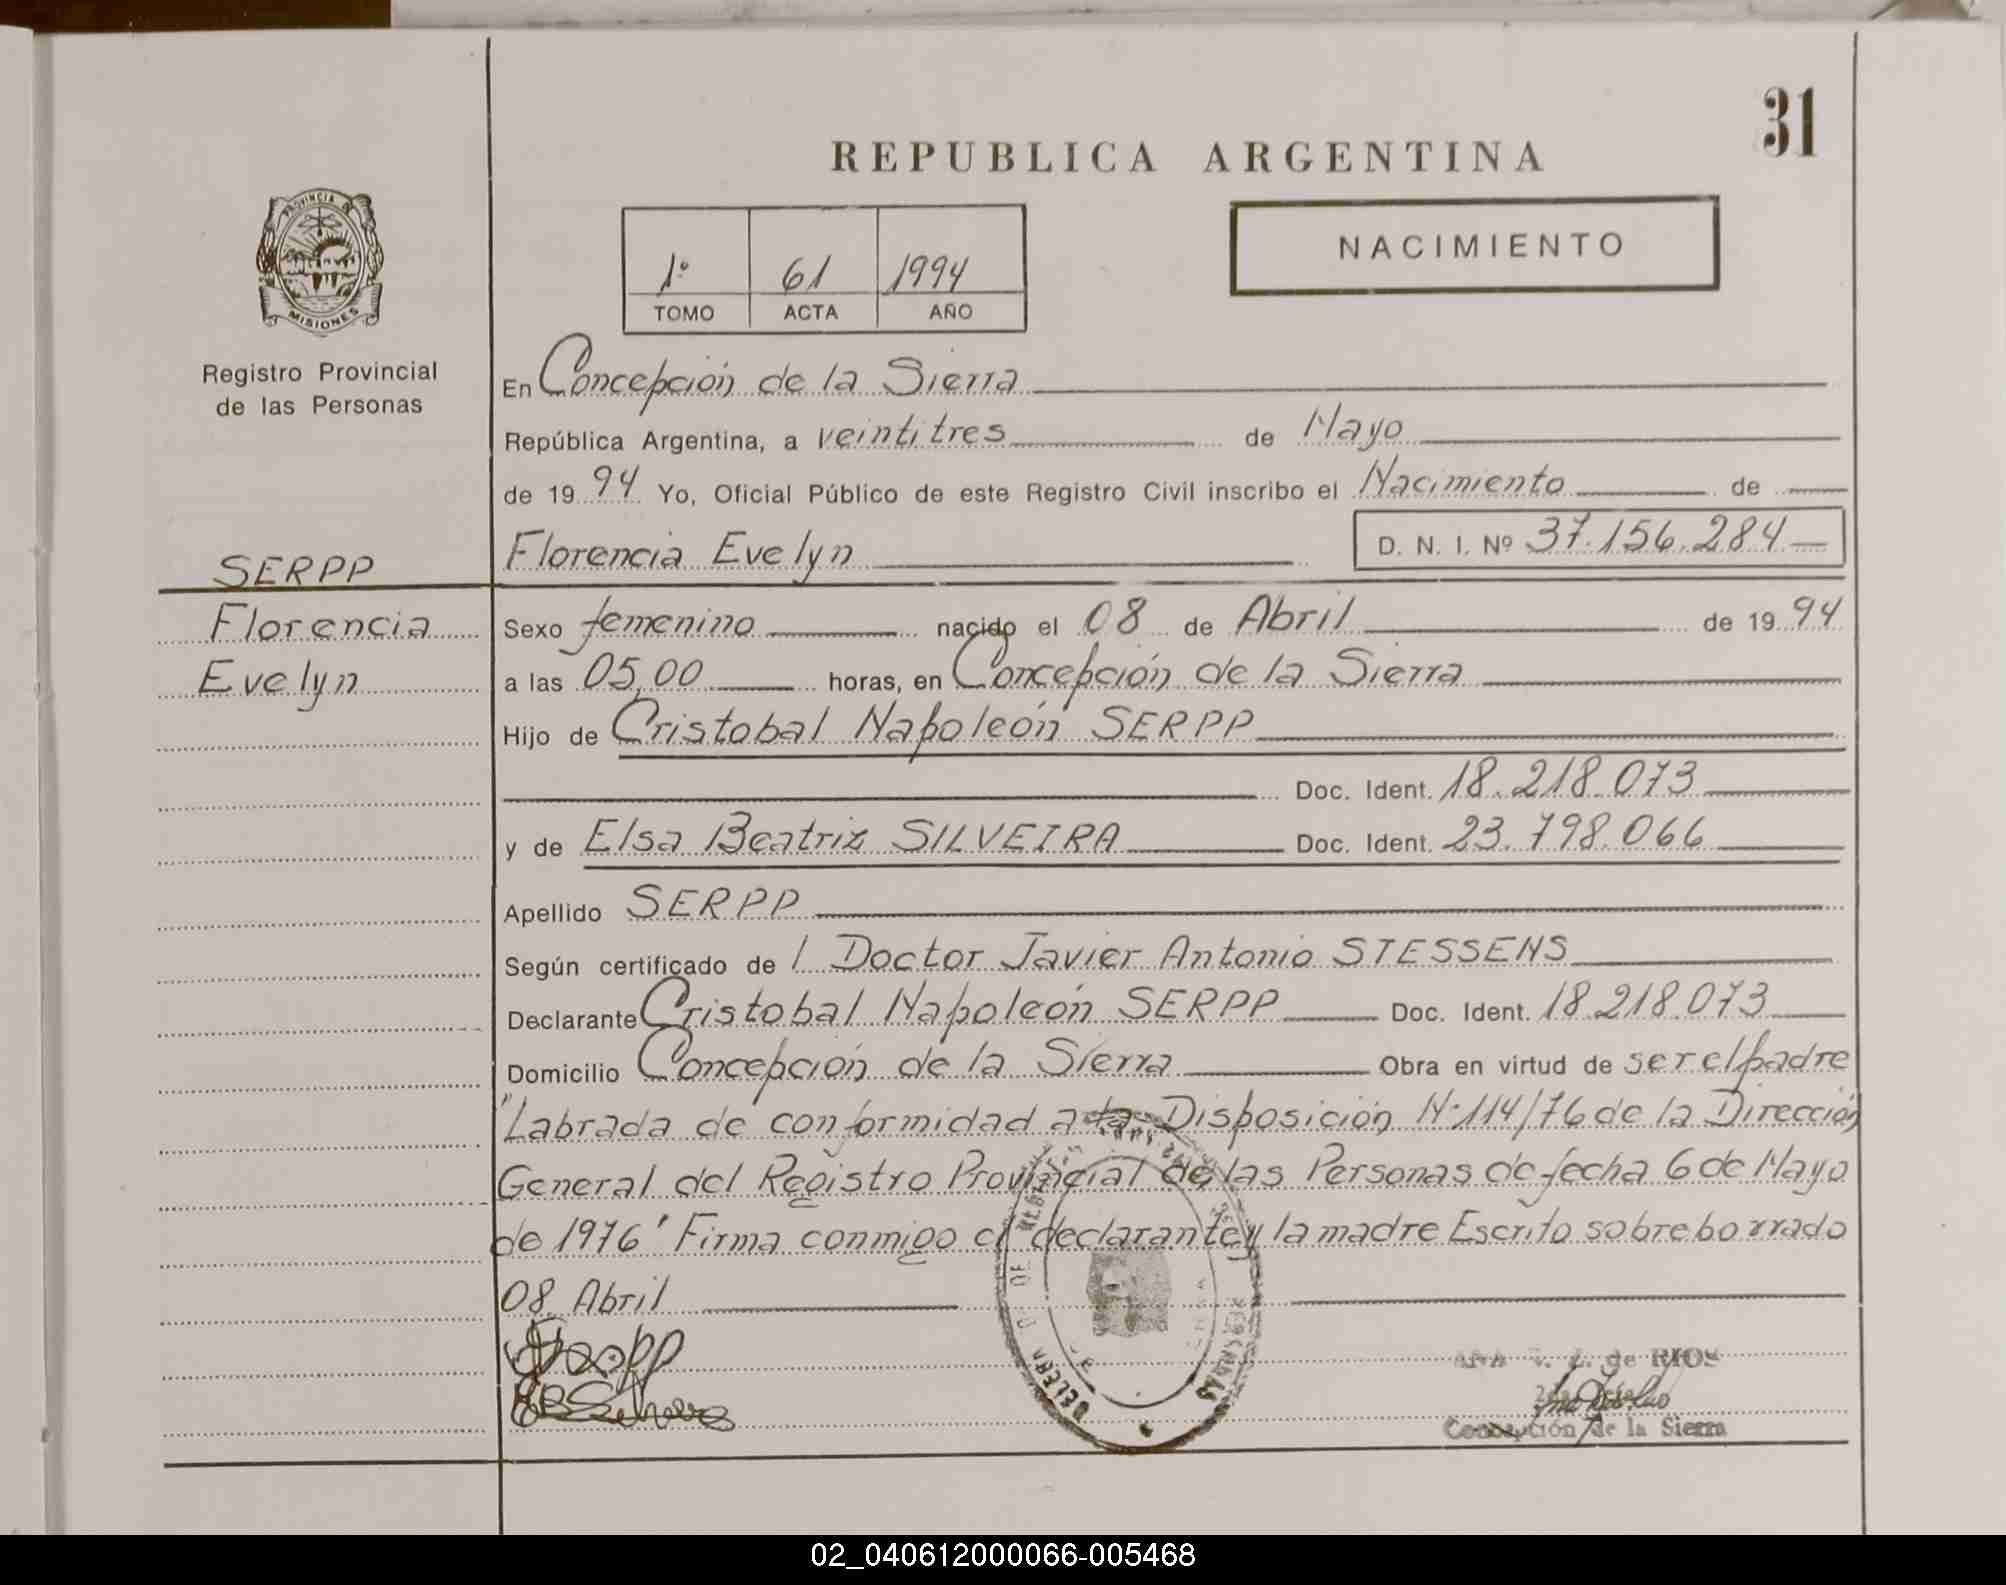 31
REPUBLICA ARGENTINA
PROVINCIA DE
MISIONES
Registro Provincial
de las Personas
1º 61 1994
TOMO ACTA AÑO
NACIMIENTO
En Concepción de la Sierra
República Argentina, a veintitres de Mayo
de 19 94 Yo, Oficial Público de este Registro Civil inscribo el Nacimiento de
Florencia Evelyn D. N. I. Nº 37.156.284
SERPP
Florencia
Evelyn
Sexo femenino nacido el 08 de Abril de 19 94
a las 05,00 horas, en Concepción de la Sierra
Hijo de Cristobal Napoleón SERPP
Doc. Ident. 18.218.073
y de Elsa Beatriz SILVEIRA Doc. Ident. 23.798.066
Apellido SERPP
Según certificado de l Doctor Javier Antonio STESSENS
Declarante Cristobal Napoleón SERPP Doc. Ident. 18.218.073
Domicilio Concepción de la Sierra Obra en virtud de ser el padre
"Labrada de conformidad a la Disposición Nº 114/76 de la Dirección
General del Registro Provincial de las Personas de fecha 6 de Mayo
de 1976" Firma conmigo el declarante y la madre Escrito sobre borrado
08 Abril
de RIOS
Concepción de la Sierra
02_040612000066-005468